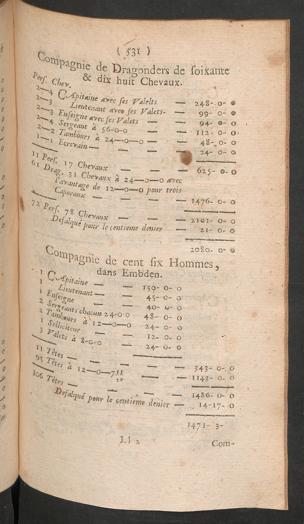 ( 531 )
Compagnie de Dragonders de soixante
& dix huit Chevaux.
Pers. Chev.
2—4 CApitaine avec ses Valets — 248- 0- 0
2—3 Lieutenant avec ses Valets- 99- 0- 0
2—3 Enseigne avec ses Valets — 94- 0- 0
2—4 Sergeans à 56-0-0 — 112- 0- 0
2—2 Tambours à 24—0—0 — 48- 0- 0
1—1 Ecrivain — — 24- 0- 0
11 Pers. 17 Chevaux — — 625- 0- 0
61 Drag. 31 Chevaux à 24—0—0 avec
l'avantage de 12—0—0 pour trois
Caporaux — — — 1476- 0- 0
72 Pers. 78 Chevaux — — 2101- 0- 0
Desalqué pour le centieme denier — 21- 0- 0
2080- 0- 0
Compagnie de cent six Hommes,
dans Embden.
1 CApitaine — — 150- 0- 0
1 Lieutenant — — 45- 0- 0
1 Enseigne — — 40- 0- 0
2 Sergeants chacun 24-0-0 48- 0- 0
2 Tambours à 12—0—0 24- 0- 0
1 Solliciteur — — 12- 0- 0
3 Valets à 8-0-0 — 24- 0- 0
11 Têtes — — — 343- 0- 0
95 Têtes à 12—0—7 — 1143- 0- 0
106 Têtes — — — 1486- 0- 0
Desalqué pour le centieme denier — 14-17- 0
1471- 3-
Ll 2 Com-